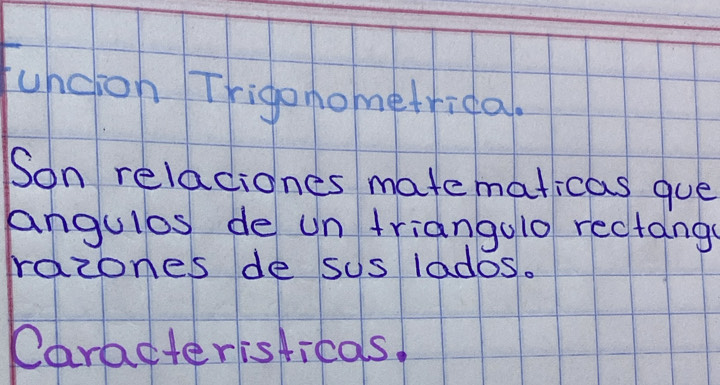 Funcion Trigonometrica.
Son relaciones matematicas que
angulos de un triangulo
razones de sus lados.
Caracteristicas.